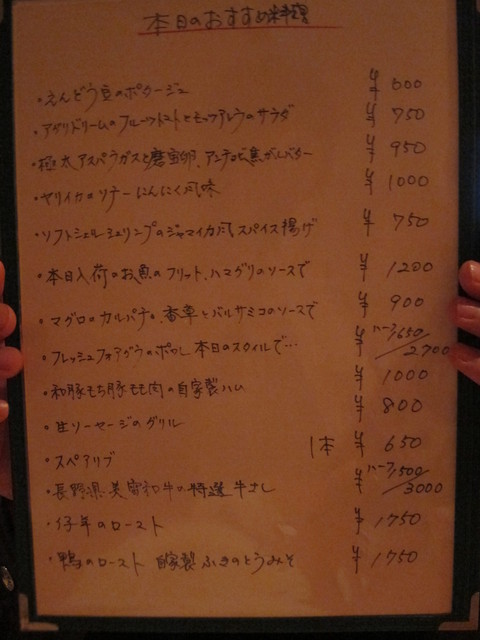 本日のおすすめ料理
・えんどう豆のポタージュ ¥600
・アグリドリームのフルーツトマトとモッツアレラのサラダ ¥750
・極太アスパラガスと 卵、アンチョビ焦がしバター ¥950
・ヤリイカのソテーにんにく風味 ¥1000
・ソフトシェルシュリンプのジャマイカ風スパイス揚げ ¥750
・本日入荷のお魚のフリット、ハマグリのソースで ¥1200
・マグロのカルパッチョ、香草とバルサミコのソースで ¥900
・フレッシュフォアグラのポワレ 本日のスタイルで… ¥ハーフ1650/2700
・和豚もち豚もも肉の自家製ハム ¥1000
・生ソーセージのグリル ¥800
・スペアリブ 1本 ¥650
・長野県 和牛の特選牛さし ¥ハーフ1500/3000
・仔羊のロースト ¥1750
・鴨のロースト 自家製ふきのとうみそ ¥1750